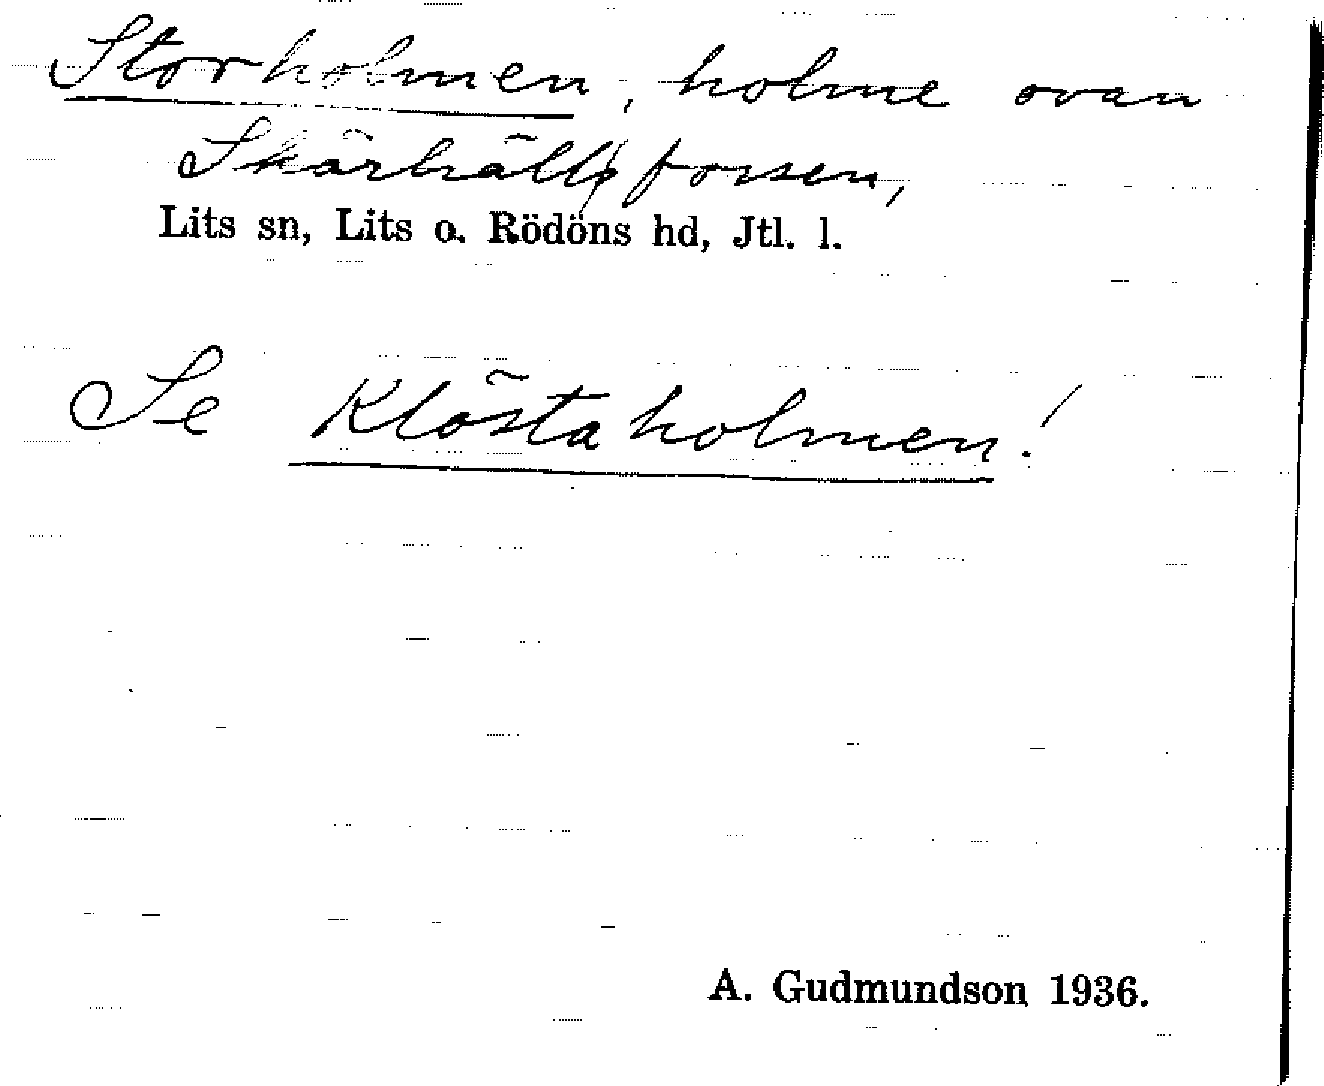 Storholmen, holme ovan
Skärhällsforsen,
Lits sn, Lits o. Rödöns hd, Jtl. l.
Se Klöstaholmen!
A. Gudmundson 1936.